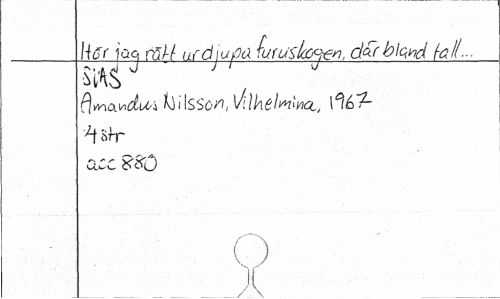 Hör jag rätt ur djupa furuskogen, där bland tall...
SVAS
Amandus Nilsson, Vilhelmina, 1967
4 str
acc 880